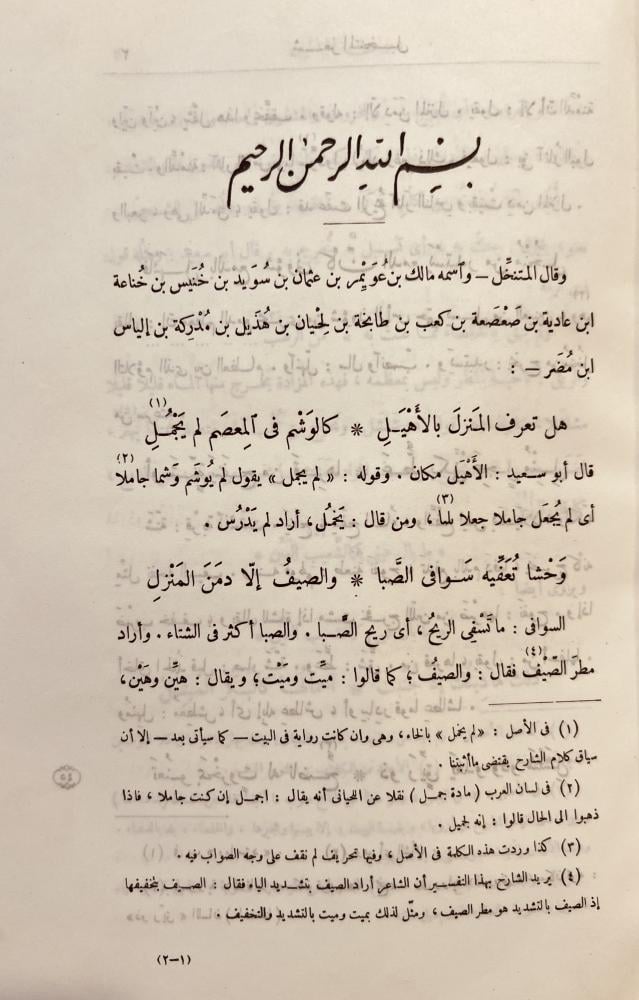 بسم الله الرحمن الرحيم
وقال المتنخِّل – وٱسمه مالك بن عُوَيْمِر بن عثمان بن سُوَيد بن خُنَيس بن خُناعة
ابن عادية بن صَعْصَعة بن كعب بن طابخة بن لِحْيان بن هُذَيل بن مُدْرِكة بن إلياس
ابن مُضَر – :
هل تعرف المَنزلَ بالأَهْيَلِ * كالوَشْم فى المِعصَم لم يَجْمُلِ (١)
قال أبو سعيد : الأَهْيَل مكان . وقوله : « لم يجمل » يقول لم يُوشَم وَشما جاملا (٢)
أى لم يُجعَل جاملا جعلا بلما (٣) ، ومن قال : يَخمُل ، أراد لم يَدْرُس .
وَحْشا تُعَفِّيه سَوافى الصَّبا * والصيفُ إلّا دمَنَ المَنْزلِ
السوافى : ما تَسْفِى الريحُ ، أى ريح الصَّبا . والصبا أكثر فى الشتاء . وأراد
مطرَ الصّيِّف (٤) فقال : والصيفُ ؛ كما قالوا : ميِّت ومَيْت ؛ ويقال : هيِّن وهَيْن ،
(١) فى الأصل : « لم يخمل » بالخاء ، وهى وان كانت رواية فى البيت – كما سيأتى بعد – إلا أن
سياق كلام الشارح يقتضى ما أثبتنا .
(٢) فى لسان العرب ( مادة جمل ) نقلا عن اللحيانى أنه يقال : اجمل إن كنت جاملا ، فاذا
ذهبوا الى الحال قالوا : إنه لجميل .
(٣) كذا وردت هذه الكلمة فى الأصل ، وفيها تحريف لم نقف على وجه الصواب فيه .
(٤) يريد الشارح بهذا التفسير أن الشاعر أراد الصيف بتشديد الياء فقال : الصيف بتخفيفها
إذ الصيف بالتشديد هو مطر الصيف ، ومثّل لذلك بميت وميت بالتشديد والتخفيف .
(٢-١)